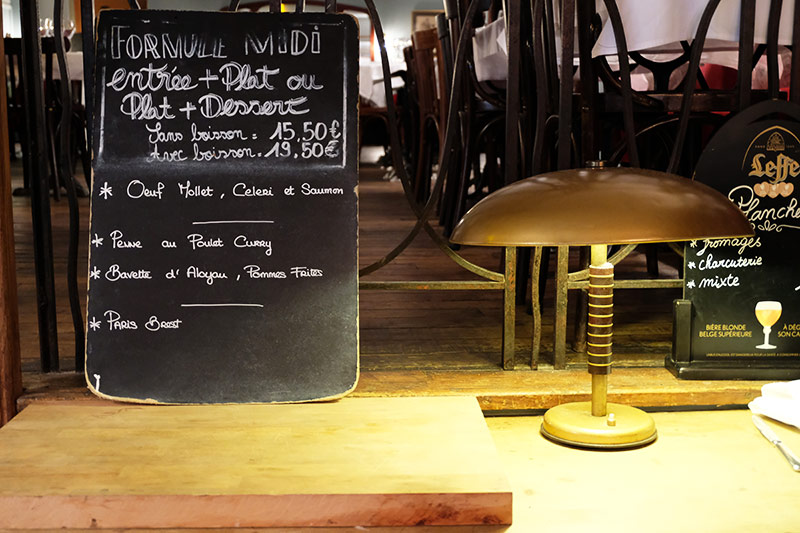 FORMULE MIDI
entrée + Plat ou
Plat + Dessert
Sans boisson = 15,50€
Avec boisson. 19,50€
* Oeuf Mollet, Celeri et Saumon
* Penne au Poulet Curry
* Bavette d'Aloyau, Pommes Frites
* Paris Brest
Leffe
Planche
* fromages
* charcuterie
* mixte
BIÈRE BLONDE
BELGE SUPÉRIEURE
À DÉG
SON CA